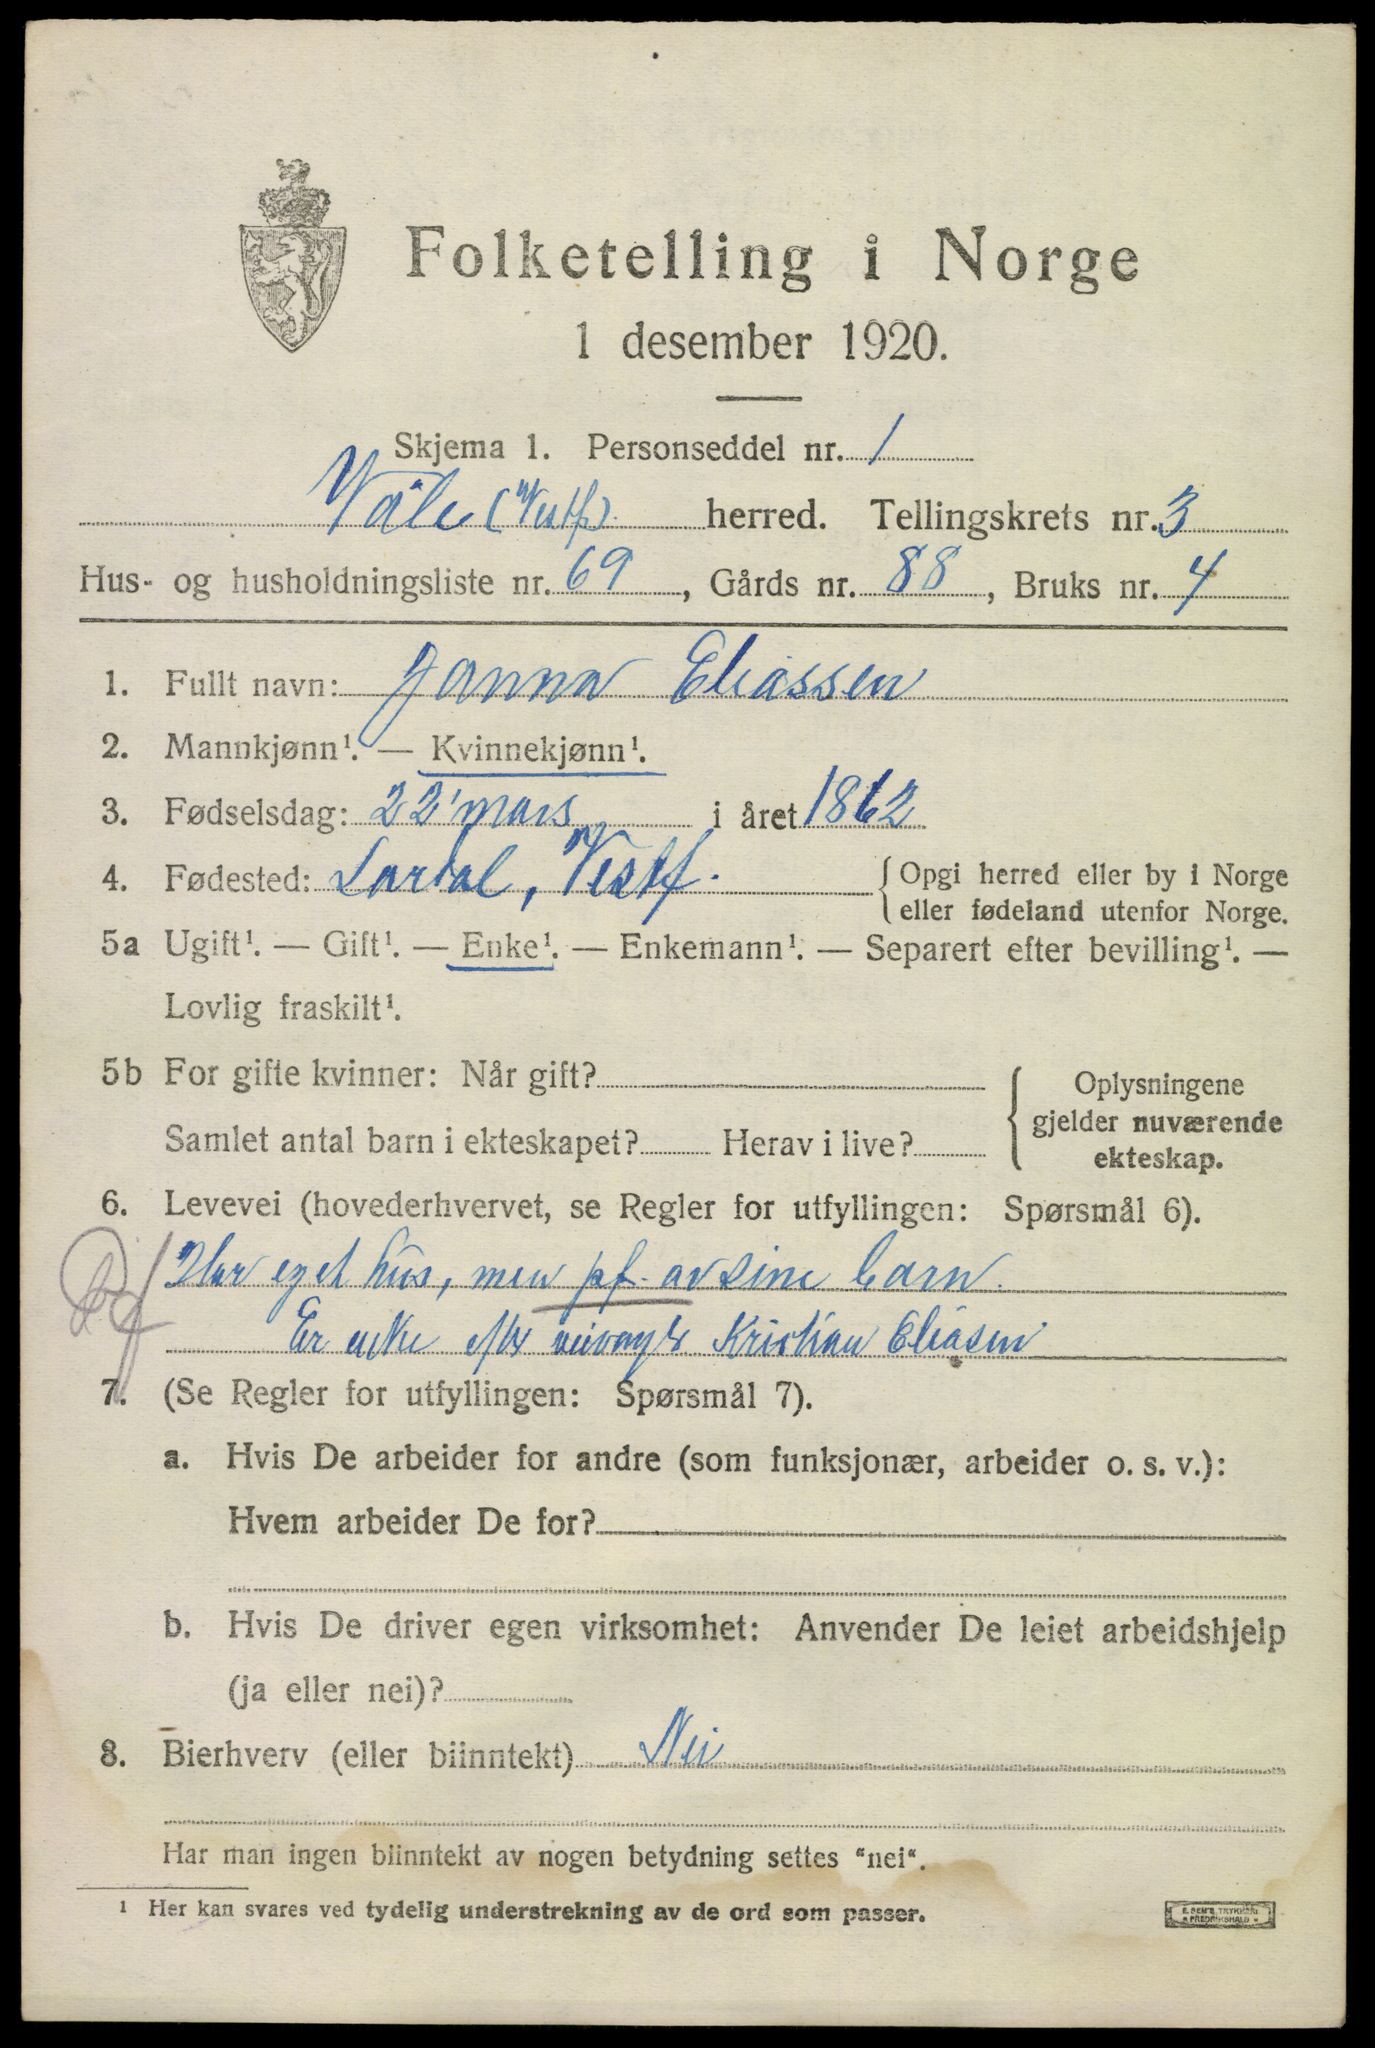 Folketelling i Norge
1 desember 1920.
Skjema 1. Personseddel nr. 1
Våle (Vestf.) herred. Tellingskrets nr. 3
Hus- og husholdningsliste nr. 69, Gårds nr. 88, Bruks nr. 4
1. Fullt navn: Janna Eliassen
2. Mannkjønn¹. — Kvinnekjønn¹.
3. Fødselsdag: 22' mars i året 1862
4. Fødested: Lardal, Vestf. { Opgi herred eller by i Norge
eller fødeland utenfor Norge.
5a Ugift¹. — Gift¹. — Enke¹. — Enkemann¹. — Separert efter bevilling¹. —
Lovlig fraskilt¹.
5b For gifte kvinner: Når gift?
Samlet antal barn i ekteskapet? Herav i live?
{ Oplysningene
gjelder nuværende
ekteskap.
6. Levevei (hovederhvervet, se Regler for utfyllingen: Spørsmål 6).
Har eget hus, men pf. av sine barn.
Er enke efter Kristian Eliasen
7. (Se Regler for utfyllingen: Spørsmål 7).
a. Hvis De arbeider for andre (som funksjonær, arbeider o. s. v.):
Hvem arbeider De for?
b. Hvis De driver egen virksomhet: Anvender De leiet arbeidshjelp
(ja eller nei)?
8. Bierhverv (eller biinntekt) Nei
Har man ingen biinntekt av nogen betydning settes "nei".
¹ Her kan svares ved tydelig understrekning av de ord som passer.
E. SEM'S TRYKKERI
FREDRIKSHALD